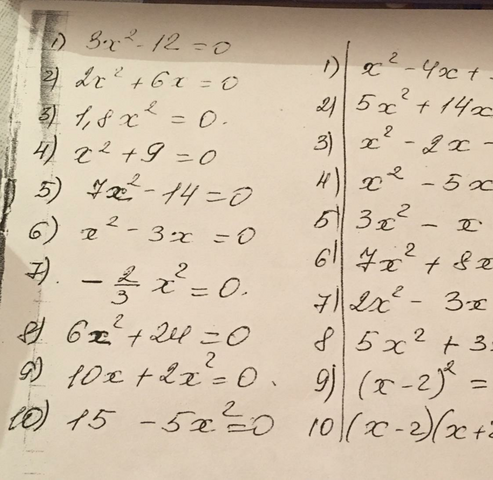 1) 3x² - 12 = 0
2) 2x² + 6x = 0
3) 1,8x² = 0.
4) x² + 9 = 0
5) 7x² - 14 = 0
6) x² - 3x = 0
7). - 2/3 x² = 0.
8) 6x² + 24 = 0
9) 10x + 2x² = 0.
10) 15 - 5x² = 0
1) x² - 4x +
2) 5x² + 14x
3) x² - 2x -
4) x² - 5x
5) 3x² - x
6) 7x² + 8x
7) 2x² - 3x
8 5x² + 3
9) (x-2)² =
10 (x-2)(x+2